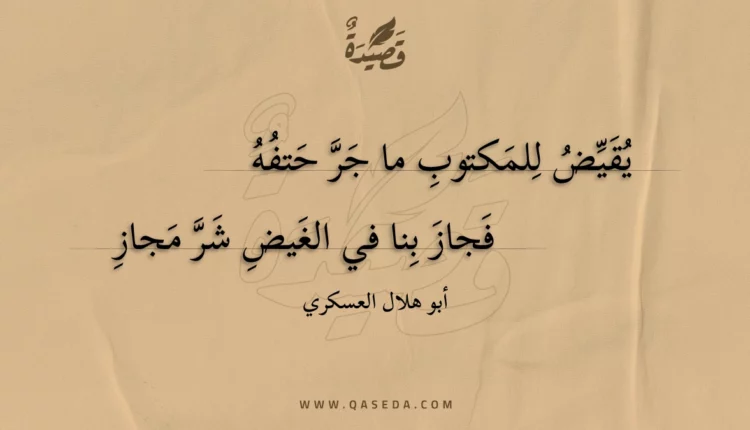 قَصِيدَةٌ
يُقَيِّضُ لِلمَكتوبِ ما جَرَّ حَتفُهُ
فَجازَ بِنا في الغَيضِ شَرَّ مَجازِ
أبو هلال العسكري
WWW.QASEDA.COM